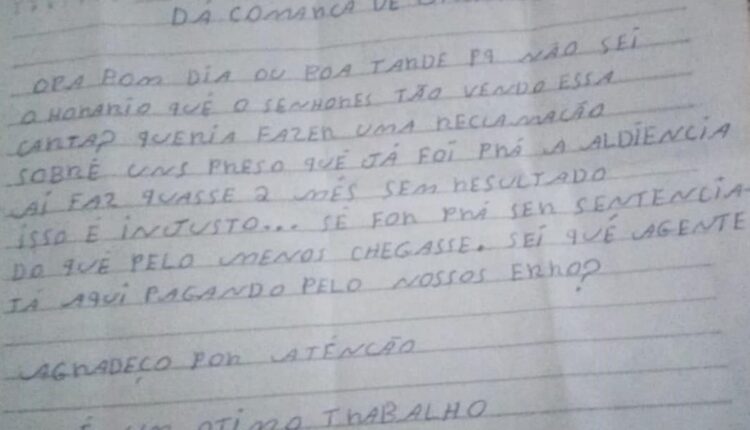 DA COMANCA DE
OPA BOM DIA OU BOA TANDE PQ NÃO SEI
O HONANIO QUÉ O SENHONES TÃO VENDO ESSA
CANTA? QUENIA FAZEN UMA NECLAMAÇÃO
SOBRÉ UNS PRESO QUÉ JÁ FOI PNÁ A ALDIENCIA
AÍ FAZ QUASSE 2 MÉS SEM RESULTADO
ISSO É INJUSTO... SÉ FON PNÁ SEN SENTENCIA
DO QUÉ PELO MENOS CHEGASSE. SEI QUÉ AGENTE
TÁ AQUI PAGANDO PELO NOSSOS ERNO?
AGNADEÇO PON ATÉNCÃO
É UM OTIMO TNABALHO